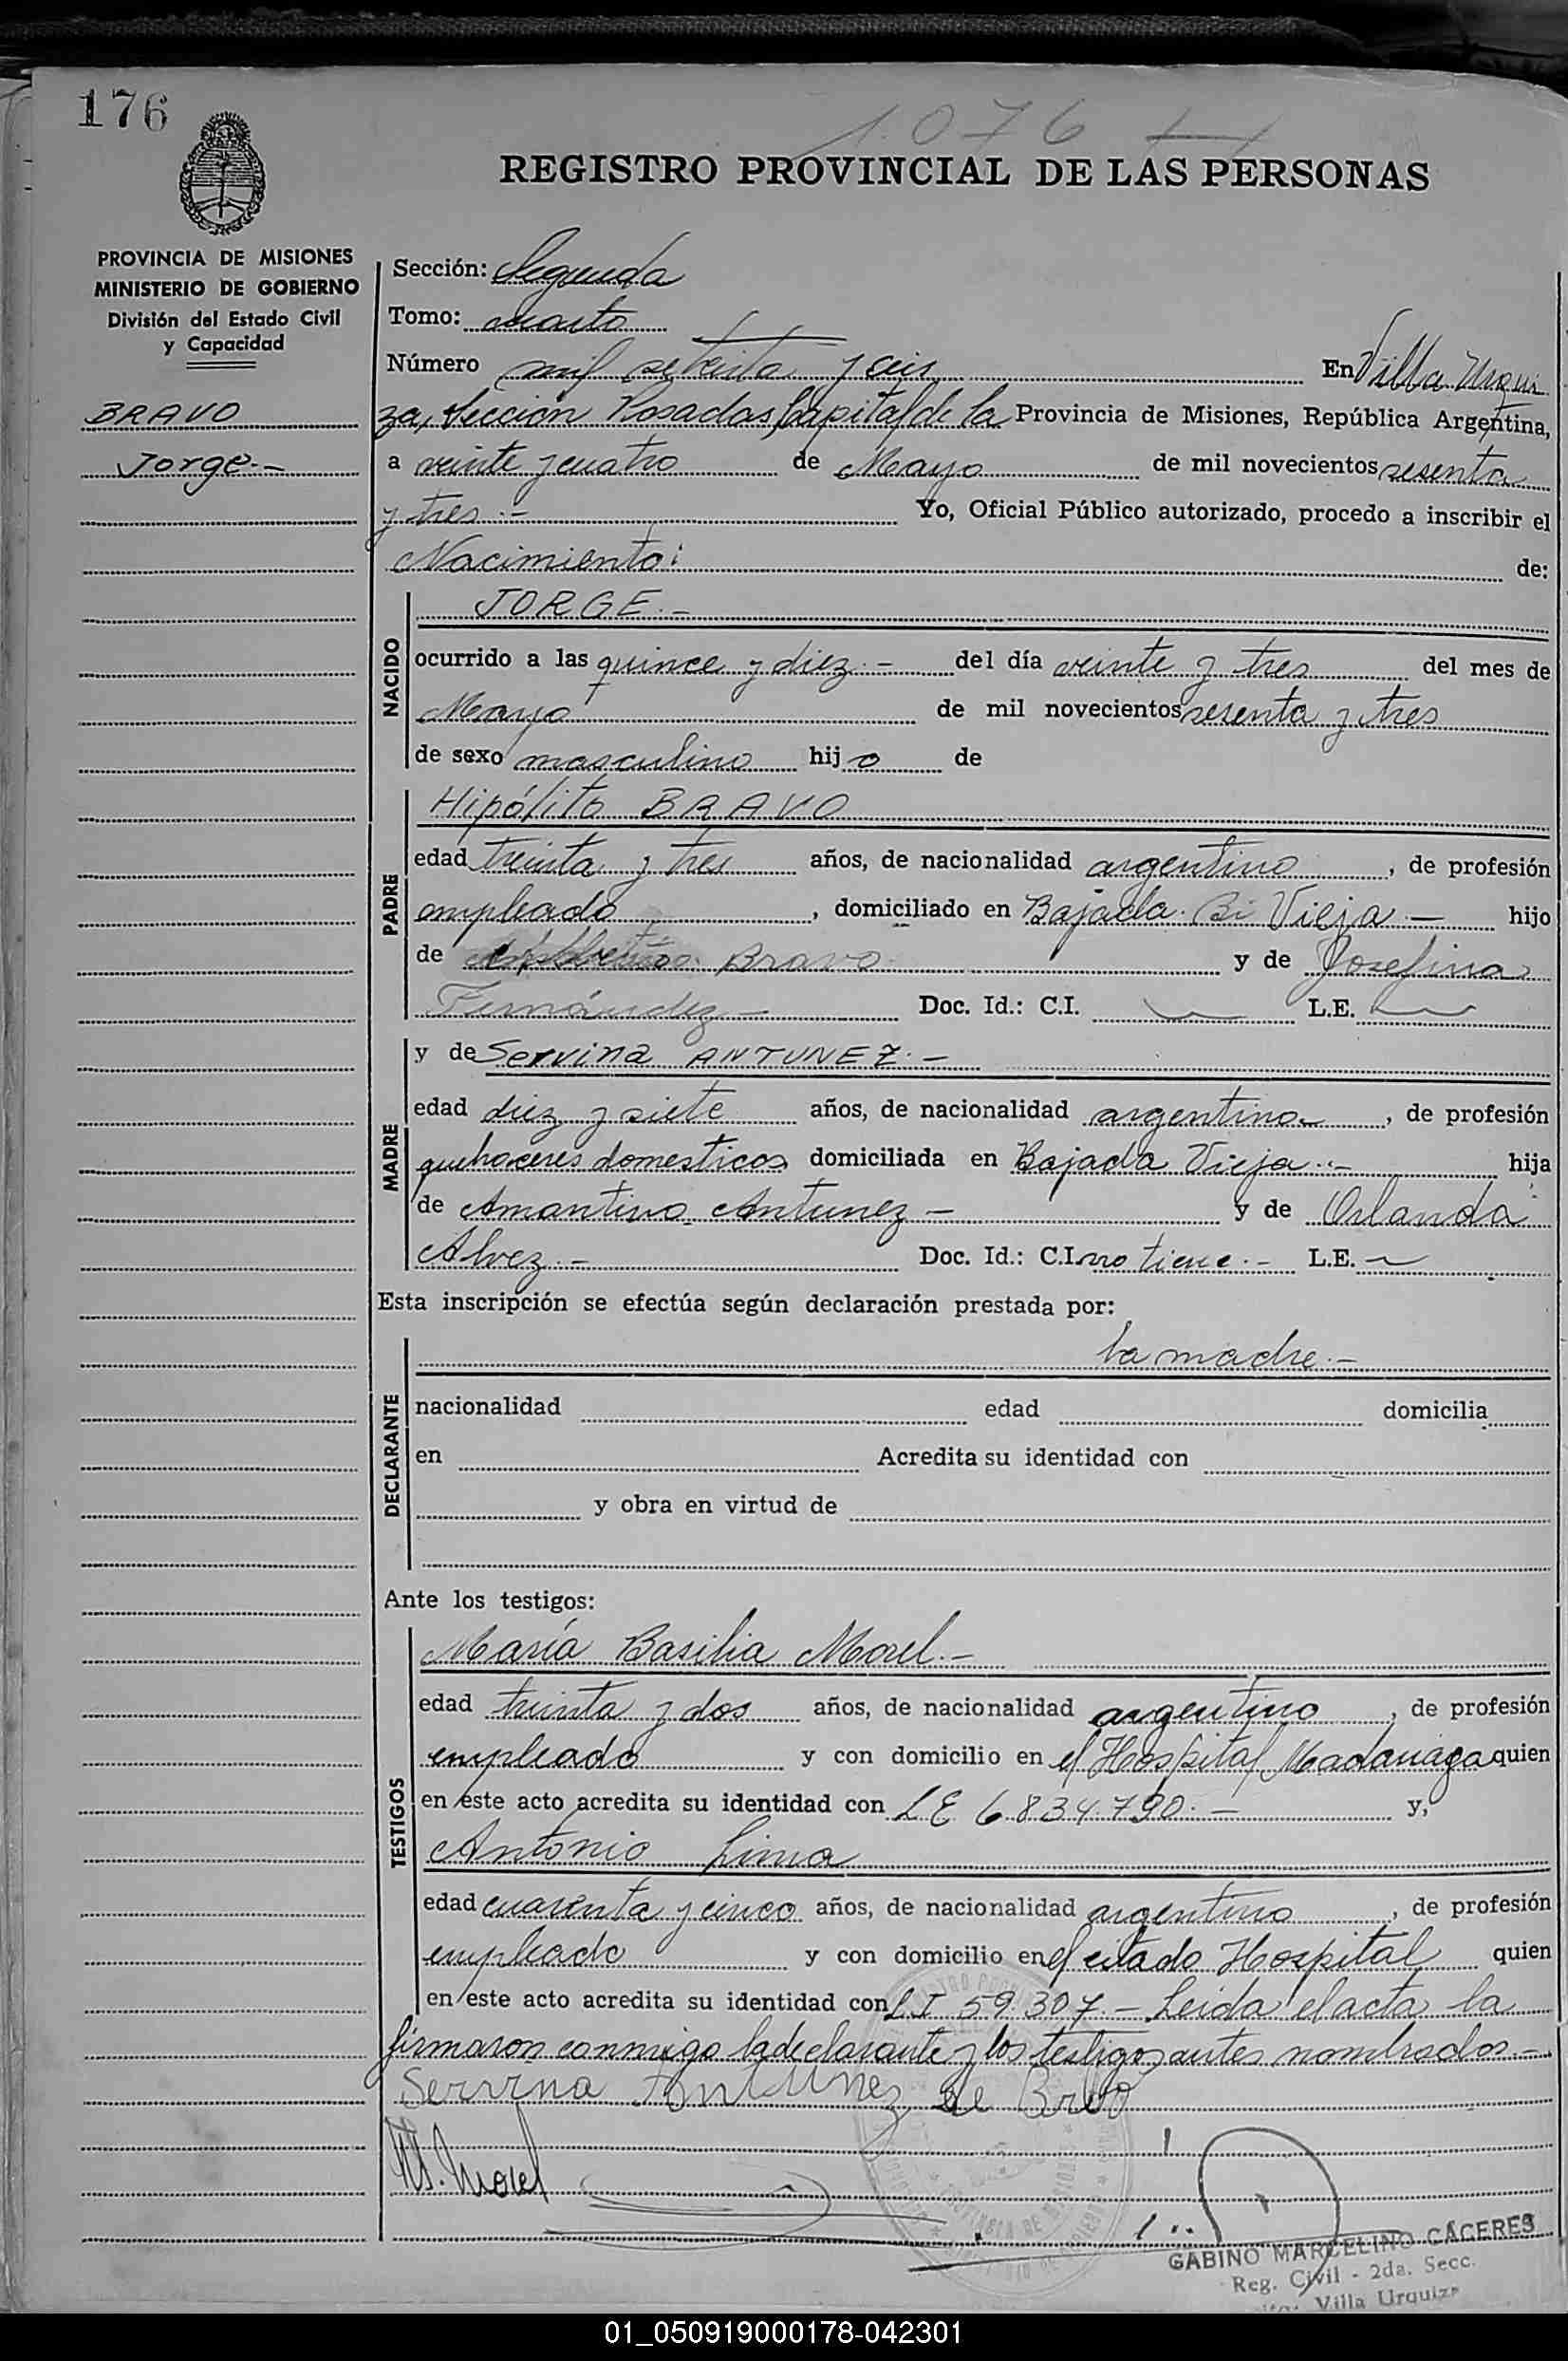 176
1.076
REGISTRO PROVINCIAL DE LAS PERSONAS
PROVINCIA DE MISIONES
MINISTERIO DE GOBIERNO
División del Estado Civil
y Capacidad
BRAVO
Jorge.-
Sección: Segunda
Tomo: cuarto
Número mil setenta y seis En Villa Urqui
za, Sección Posadas, Capital de la Provincia de Misiones, República Argentina,
a veinte y cuatro de Mayo de mil novecientos sesenta
y tres.- Yo, Oficial Público autorizado, procedo a inscribir el
Nacimiento: de:
NACIDO
JORGE.-
ocurrido a las quince y diez.- del día veinte y tres del mes de
Mayo de mil novecientos sesenta y tres
de sexo masculino hijo de
PADRE
Hipólito BRAVO
edad treinta y tres años, de nacionalidad argentino, de profesión
empleado, domiciliado en Bajada Vieja.- hijo
de Bravo y de Josefina
Fernández- Doc. Id.: C.I. L.E.
MADRE
y de Servina ANTUNEZ.-
edad diez y siete años, de nacionalidad argentina, de profesión
quehaceres domesticos domiciliada en Bajada Vieja.- hija
de Amantino Antunez- y de Orlanda
Alvez.- Doc. Id.: C.I. no tiene.- L.E.
Esta inscripción se efectúa según declaración prestada por:
DECLARANTE
la madre.-
nacionalidad edad domicilia
en Acredita su identidad con
y obra en virtud de
Ante los testigos:
TESTIGOS
María Basilia Morel.-
edad treinta y dos años, de nacionalidad argentino, de profesión
empleado y con domicilio en el Hospital Madariaga quien
en este acto acredita su identidad con L E 6.834.790.- y,
Antonio Lima
edad cuarenta y cinco años, de nacionalidad argentino, de profesión
empleado y con domicilio en el citado Hospital quien
en este acto acredita su identidad con L I 59.307.- Leida el acta la
firmaron conmigo la declarante y los testigos antes nombrados.-
Servina Antunez de Bravo
M. Morel
GABINO MARCELINO CACERES
Reg. Civil - 2da. Secc.
Villa Urquiza
01_050919000178-042301